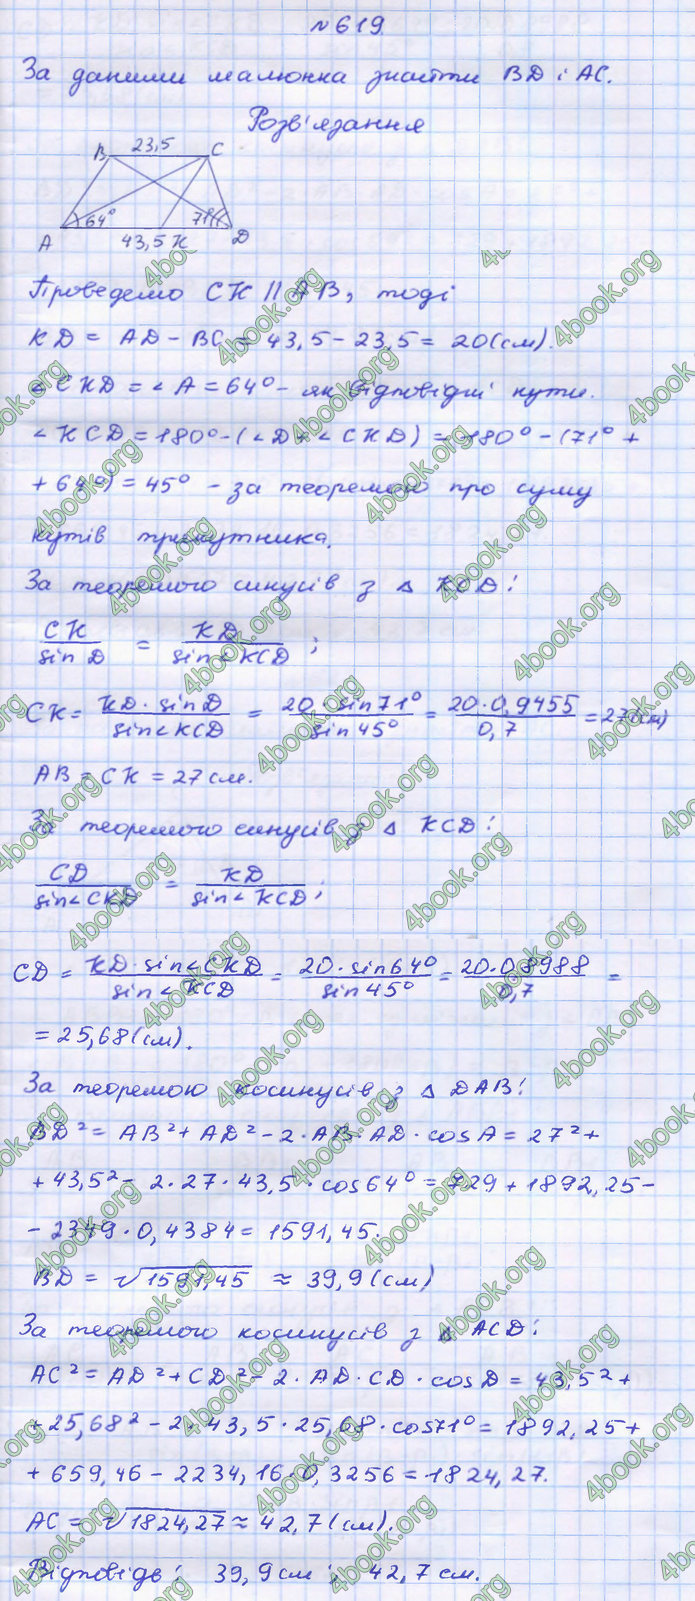 № 619
За даними малюнка знайти BD і AC.
Розв'язання
B 23,5 C
64° 71°
A 43,5 K D
Проведемо CK || AB, тоді
KD = AD - BC = 43,5 - 23,5 = 20 (см).
∠CKD = ∠A = 64° - як відповідні кути.
∠KCD = 180° - (∠D + ∠CKD) = 180° - (71° +
+ 64°) = 45° - за теоремою про суму
кутів трикутника.
За теоремою синусів з △ KCD:
CK / sin D = KD / sin∠KCD ;
CK = KD · sin D / sin∠KCD = 20 · sin 71° / sin 45° = 20 · 0,9455 / 0,7 = 27 (см)
AB = CK = 27 см.
За теоремою синусів з △ KCD:
CD / sin∠CKD = KD / sin∠KCD ;
CD = KD · sin∠CKD / sin∠KCD = 20 · sin 64° / sin 45° = 20 · 0,8988 / 0,7 =
= 25,68 (см).
За теоремою косинусів з △ DAB:
BD² = AB² + AD² - 2 · AB · AD · cos A = 27² +
+ 43,5² - 2 · 27 · 43,5 · cos 64° = 729 + 1892,25 -
- 2349 · 0,4384 = 1591,45.
BD = √1591,45 ≈ 39,9 (см)
За теоремою косинусів з △ ACD:
AC² = AD² + CD² - 2 · AD · CD · cos D = 43,5² +
+ 25,68² - 2 · 43,5 · 25,68 · cos 71° = 1892,25 +
+ 659,46 - 2234,16 · 0,3256 = 1824,27.
AC = √1824,27 ≈ 42,7 (см).
Відповідь: 39,9 см ; 42,7 см.
4book.org